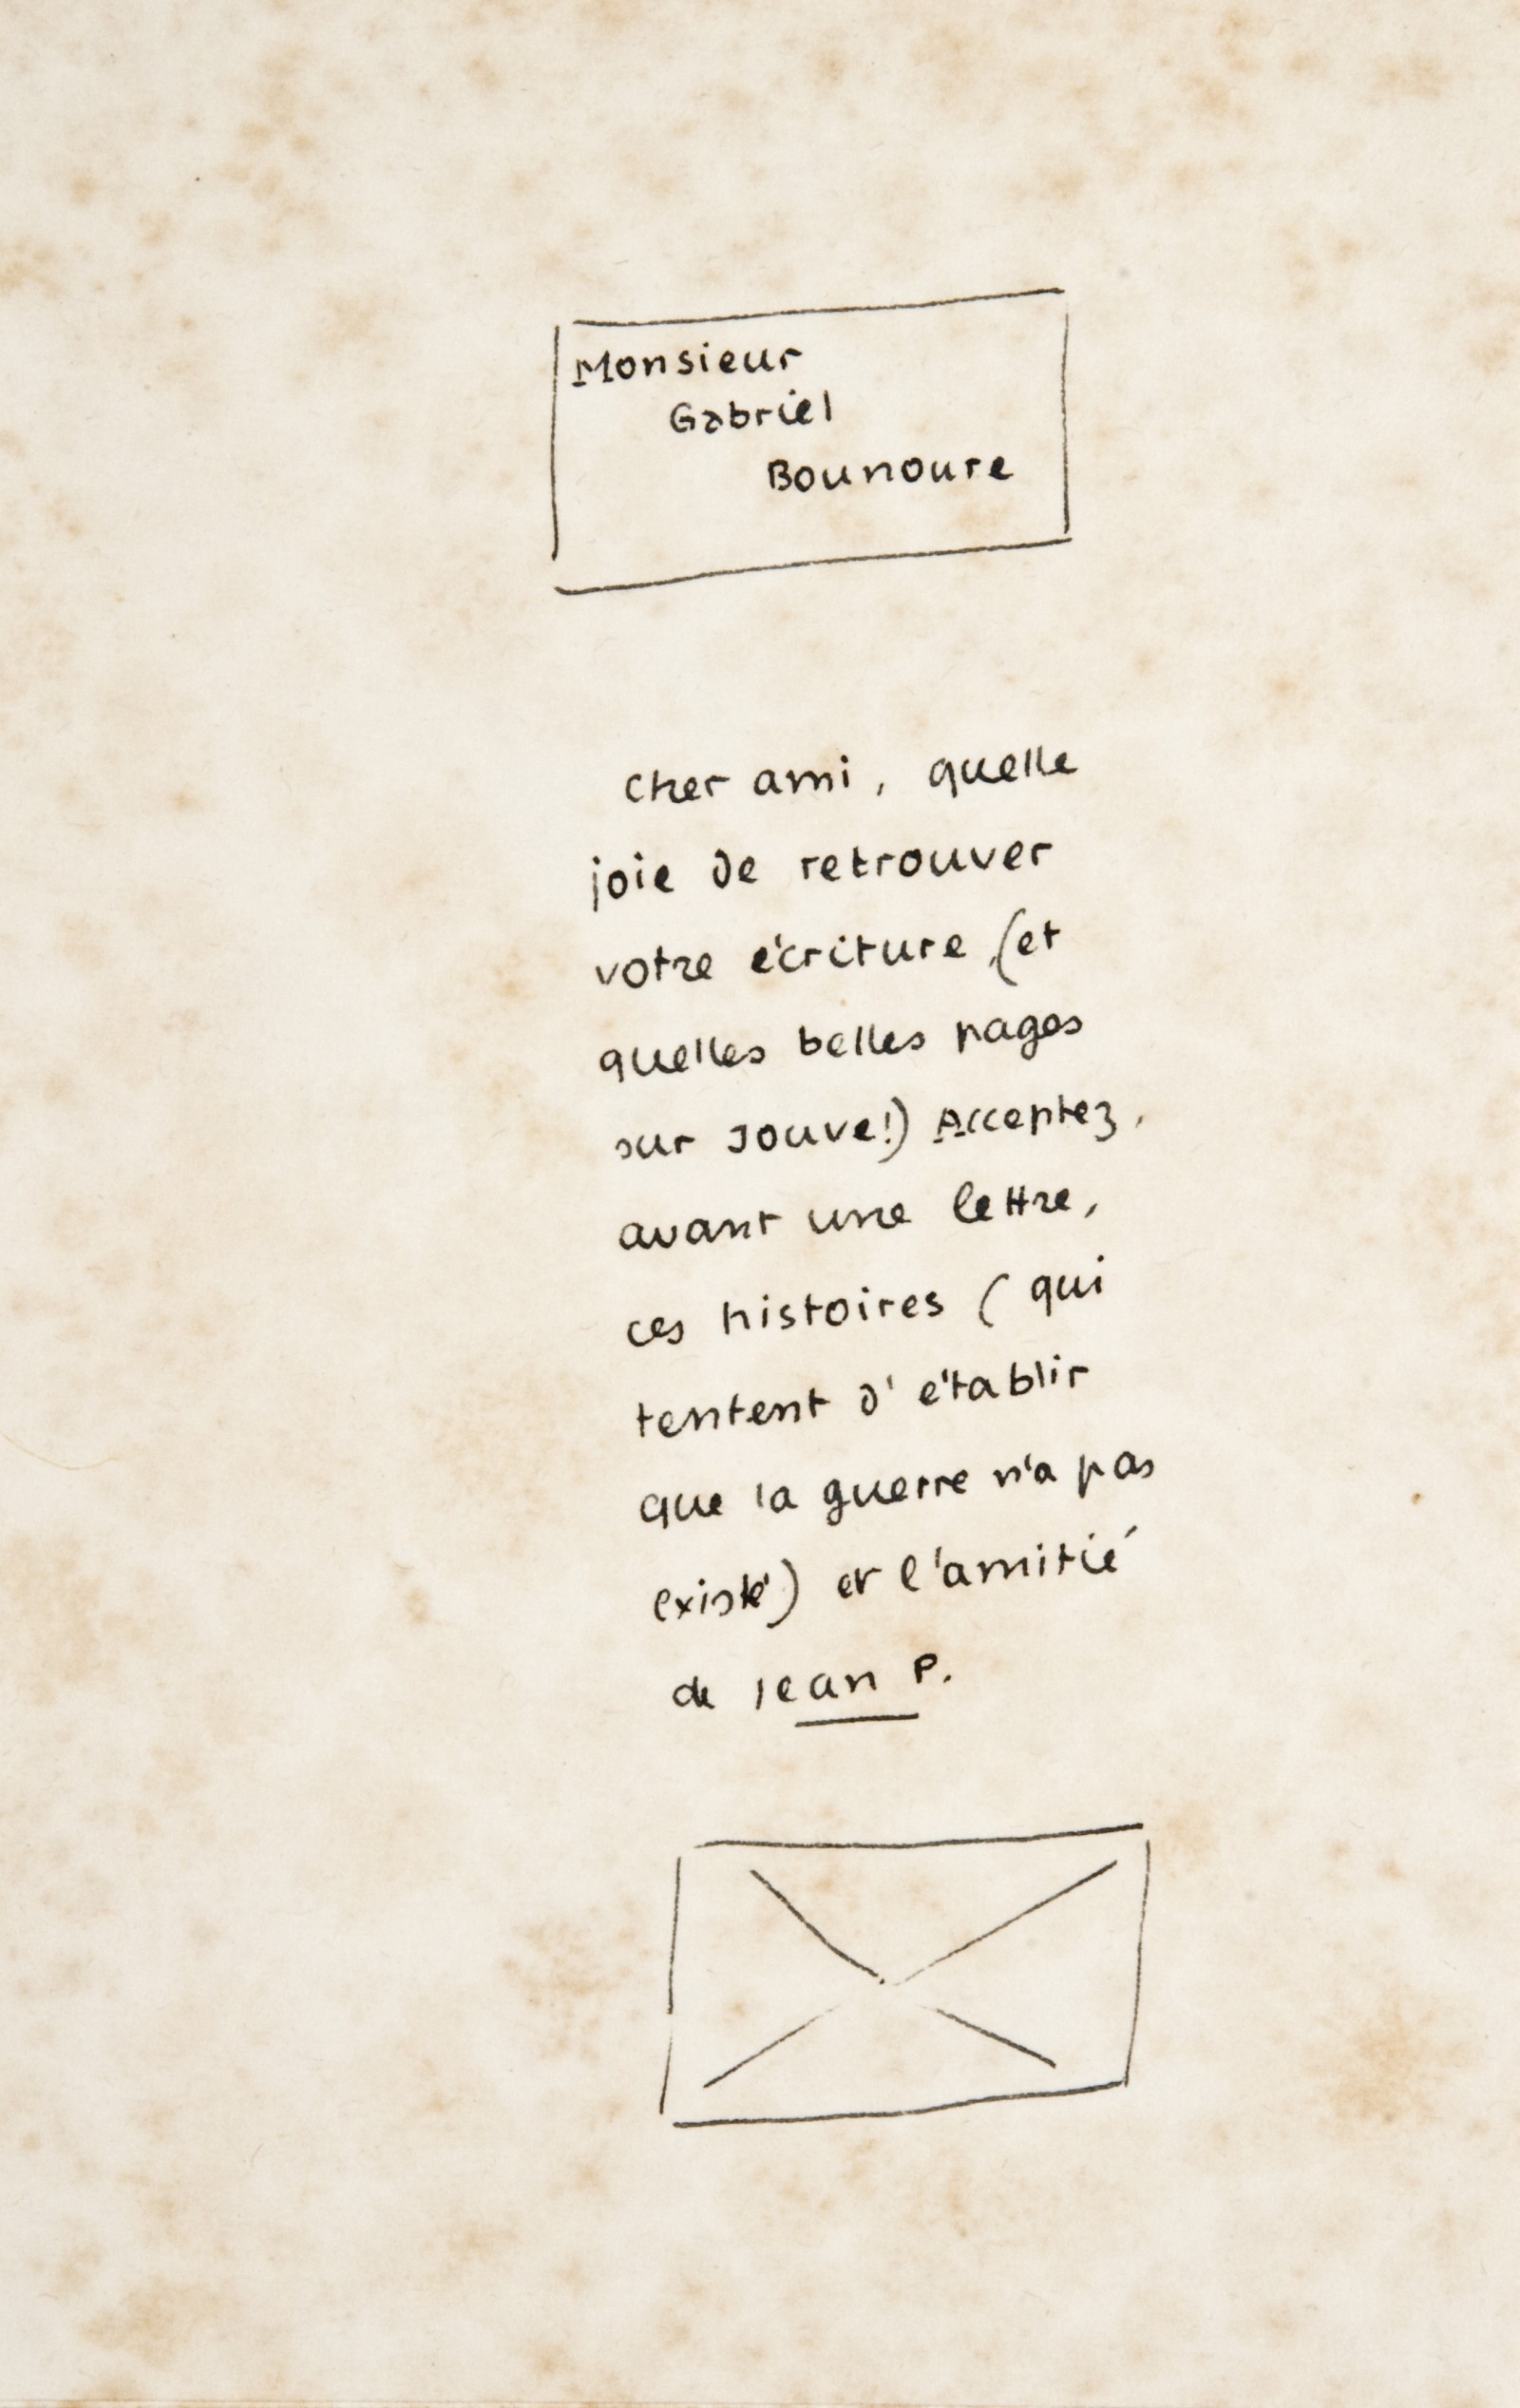 Monsieur
Gabriel
Bounoure
Cher ami, quelle
joie de retrouver
votre écriture, (et
quelles belles pages
sur Jouve!) Acceptez,
avant une lettre,
ces histoires (qui
tentent d'établir
que la guerre n'a pas
existé) et l'amitié
de Jean P.